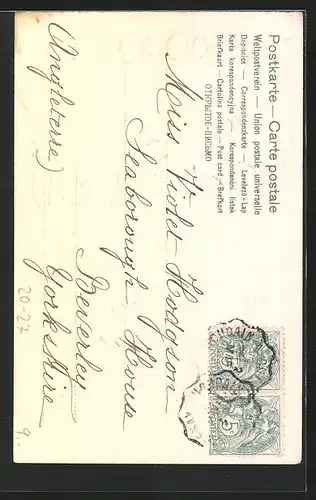 Postkarte — Carte postale
Weltpostverein — Union postale universelle
Dopisnice — Correspondenzkarte — Levelező-Lap
Karta korespondencyjna — Korespondenční lístek
Briefkaart — Cartolina postale — Post card — Brefkort
ОТКРЫТОЕ-ПИСЬМО
Miss Violet Hodgson
Seaborough House
Beverley
Yorkshire
(Angleterre)
20-27
9..
5
5